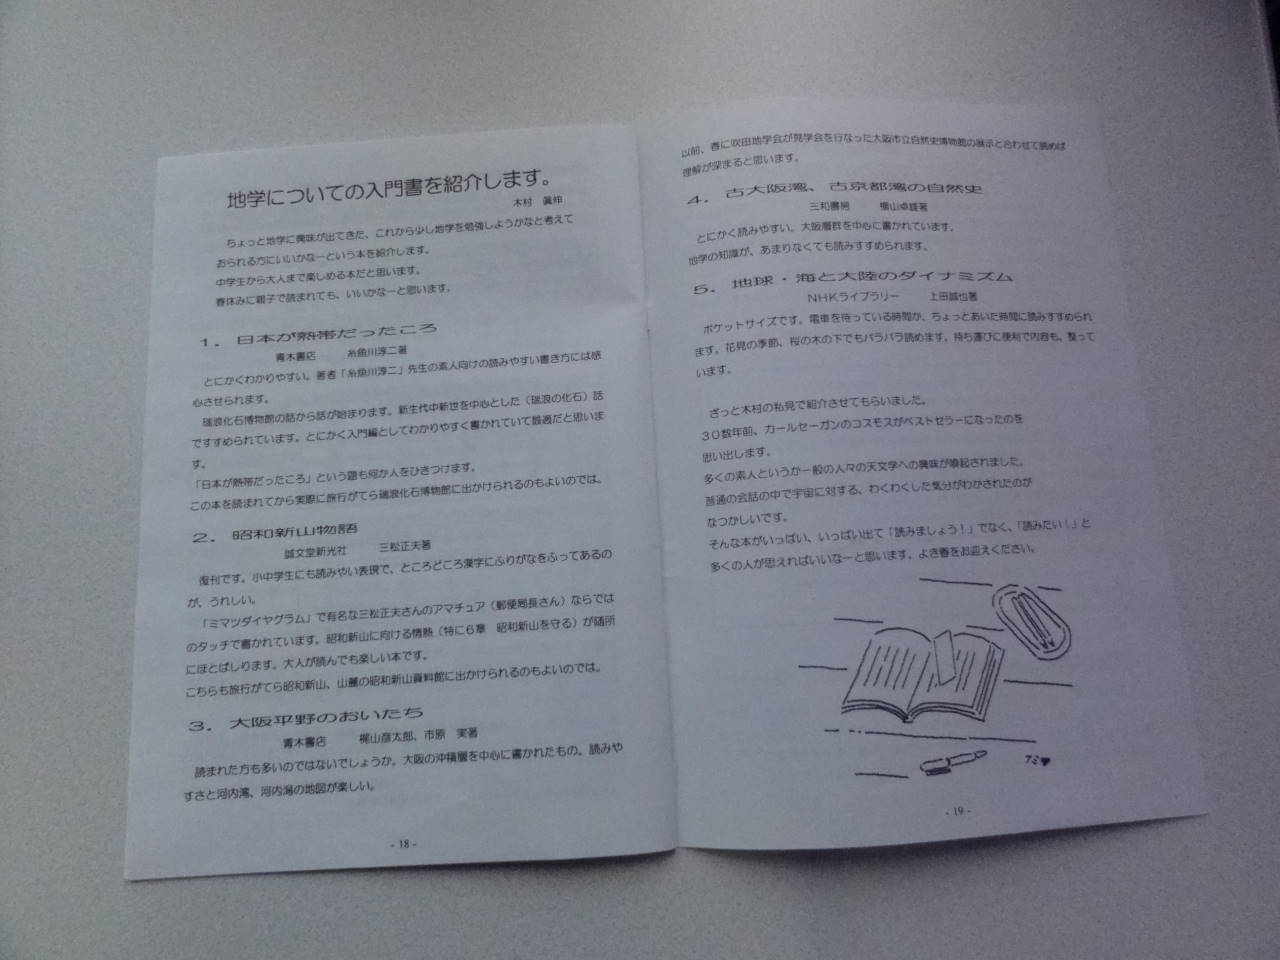 地学についての入門書を紹介します。
木村 眞伸
ちょっと地学に興味が出てきた、これから少し地学を勉強しようかなと考えて
おられる方にいいかなーという本を紹介します。
中学生から大人まで楽しめる本だと思います。
春休みに親子で読まれても、いいかなーと思います。
1. 日本が熱帯だったころ
青木書店 糸魚川淳二著
とにかくわかりやすい。著者「糸魚川淳二」先生の素人向けの読みやすい書き方には感
心させられます。
瑞浪化石博物館の話から話が始まります。新生代中新世を中心とした(瑞浪の化石)話
ですすめられています。とにかく入門編としてわかりやすく書かれていて最適だと思いま
す。
「日本が熱帯だったころ」という題も何か人をひきつけます。
この本を読まれてから実際に旅行がてら瑞浪化石博物館に出かけられるのもよいのでは。
2. 昭和新山物語
誠文堂新光社 三松正夫著
復刊です。小中学生にも読みやい表現で、ところどころ漢字にふりがなをふってあるの
が、うれしい。
「ミマツダイヤグラム」で有名な三松正夫さんのアマチュア(郵便局長さん)ならでは
のタッチで書かれています。昭和新山に向ける情熱(特に6章 昭和新山を守る)が随所
にほとばしります。大人が読んでも楽しい本です。
こちらも旅行がてら昭和新山、山麓の昭和新山資料館に出かけられるのもよいのでは。
3. 大阪平野のおいたち
青木書店 梶山彦太郎、市原 実著
読まれた方も多いのではないでしょうか。大阪の沖積層を中心に書かれたもの。読みや
すさと河内湾、河内潟の地図が楽しい。
- 18 -
以前、春に吹田地学会が見学会を行なった大阪市立自然史博物館の展示と合わせて読めば
理解が深まると思います。
4. 古大阪湾、古京都湾の自然史
三和書房 横山卓雄著
とにかく読みやすい。大阪層群を中心に書かれています。
地学の知識が、あまりなくても読みすすめられます。
5. 地球・海と大陸のダイナミズム
NHKライブラリー 上田誠也著
ポケットサイズです。電車を待っている時間か、ちょっとあいた時間に読みすすめられ
ます。花見の季節、桜の木の下でもパラパラ読めます。持ち運びに便利で内容も、整って
います。
ざっと木村の私見で紹介させてもらいました。
30数年前、カールセーガンのコスモスがベストセラーになったのを
思い出します。
多くの素人というか一般の人々の天文学への興味が喚起されました。
普通の会話の中で宇宙に対する、わくわくした気分がわかされたのが
なつかしいです。
そんな本がいっぱい、いっぱい出て「読みましょう!」でなく、「読みたい!」と
多くの人が思えればいいなーと思います。よき春をお迎えください。
- 19 -